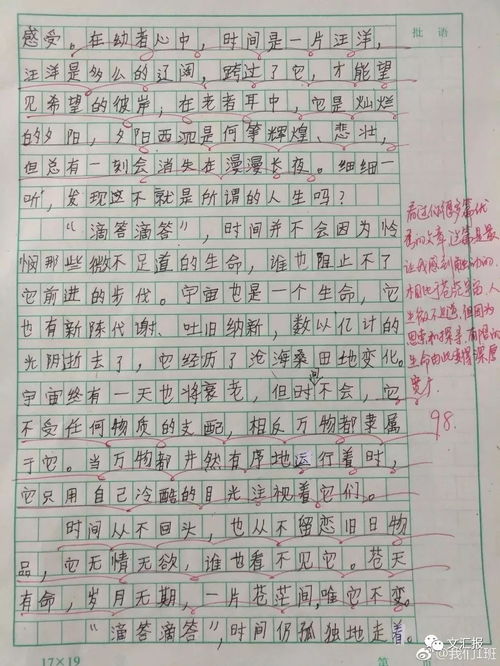 批语
感受。在幼者心中，时间是一片汪洋，
汪洋是多么的辽阔，跨过了它，才能望
见希望的彼岸，在老者耳中，它是灿烂
的夕阳，夕阳西沉是何等辉煌、悲壮，
但总有一刻会消失在漫漫长夜。细细一
听，发现这不就是所谓的人生吗？
“滴答滴答”，时间并不会因为怜
悯那些微不足道的生命，谁也阻止不了
它前进的步伐。宇宙也是一个生命，它
也有新陈代谢、吐旧纳新，数以亿计的
光阴逝去了，它经历了沧海桑田地变化。
宇宙终有一天也将衰老，但时间不会，它
不受任何物质的支配，相反万物都隶属
于它。当万物都井然有序地运行着时，
它只用自己冷酷的目光注视着它们。
时间从不回头，也从不留恋旧日物
品，它无情无欲，谁也看不见它。苍天
有命，岁月无期，一片苍茫间，唯它不变。
“滴答滴答”，时间仍孤独地走着。
看过你很多篇优
秀的文章，这篇是最
让我感到触动的。
相比于苍茫宇宙，人
生微不足道，但因为
思索和探寻，有限的
生命由此变得深厚
宽广。
98.
17×19
第
文汇报
@我们1班